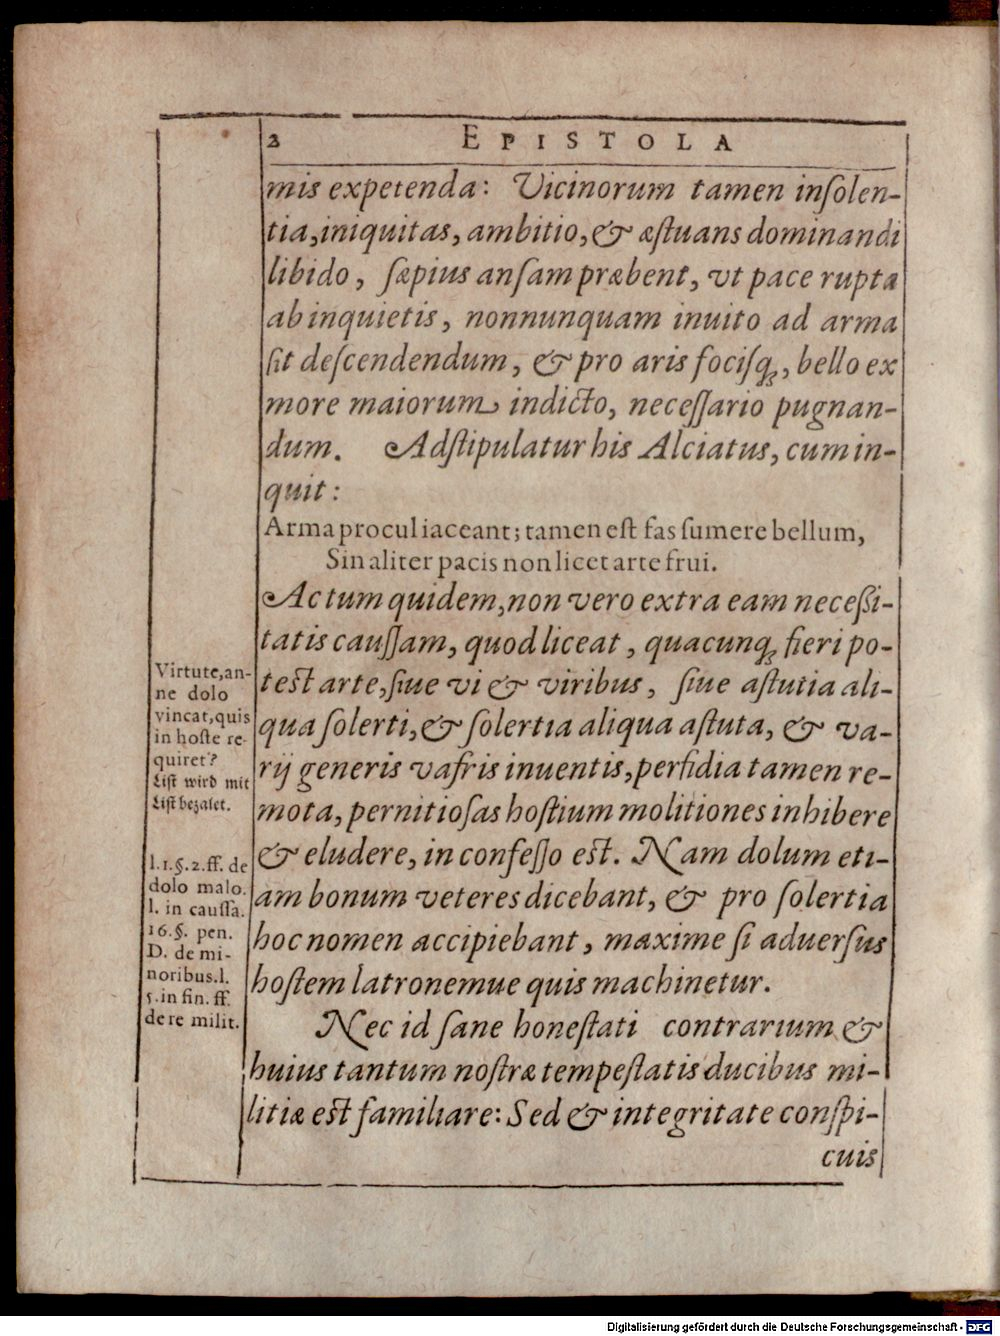 2 EPISTOLA
mis expetenda: Vicinorum tamen inſolen-
tia, iniquitas, ambitio, & æſtuans dominandi
libido, ſæpius anſam præbent, vt pace rupta
ab inquietis, nonnunquam inuito ad arma
ſit deſcendendum, & pro aris fociſq́;, bello ex
more maiorum indicto, neceſſario pugnan-
dum. Adſtipulatur his Alciatus, cum in-
quit:
Arma procul iaceant; tamen eſt fas ſumere bellum,
Sin aliter pacis non licet arte frui.
Actum quidem, non vero extra eam neceßi-
tatis cauſſam, quod liceat, quacunq́; fieri po-
test arte, ſiue vi & viribus, ſiue aſtutia ali-
qua ſolerti, & ſolertia aliqua aſtuta, & va-
rij generis vafris inuentis, perfidia tamen re-
mota, pernitioſas hoſtium molitiones inhibere
& eludere, in confeſſo est. Nam dolum eti-
am bonum veteres dicebant, & pro ſolertia
hoc nomen accipiebant, maxime ſi aduerſus
hoſtem latronemue quis machinetur.
Nec id ſane honeſtati contrarium &
huius tantum noſtræ tempeſtatis ducibus mi-
litiæ est familiare: Sed & integritate conſpi-
cuis
Virtute, an-
ne dolo
vincat, quis
in hoſte re-
quiret?
Liſt wird mit
Liſt bezalet.
l. 1. §. 2. ff. de
dolo malo.
l. in cauſſa.
16. §. pen.
D. de mi-
noribus. l.
5. in fin. ff.
de re milit.
Digitalisierung gefördert durch die Deutsche Forschungsgemeinschaft - DFG